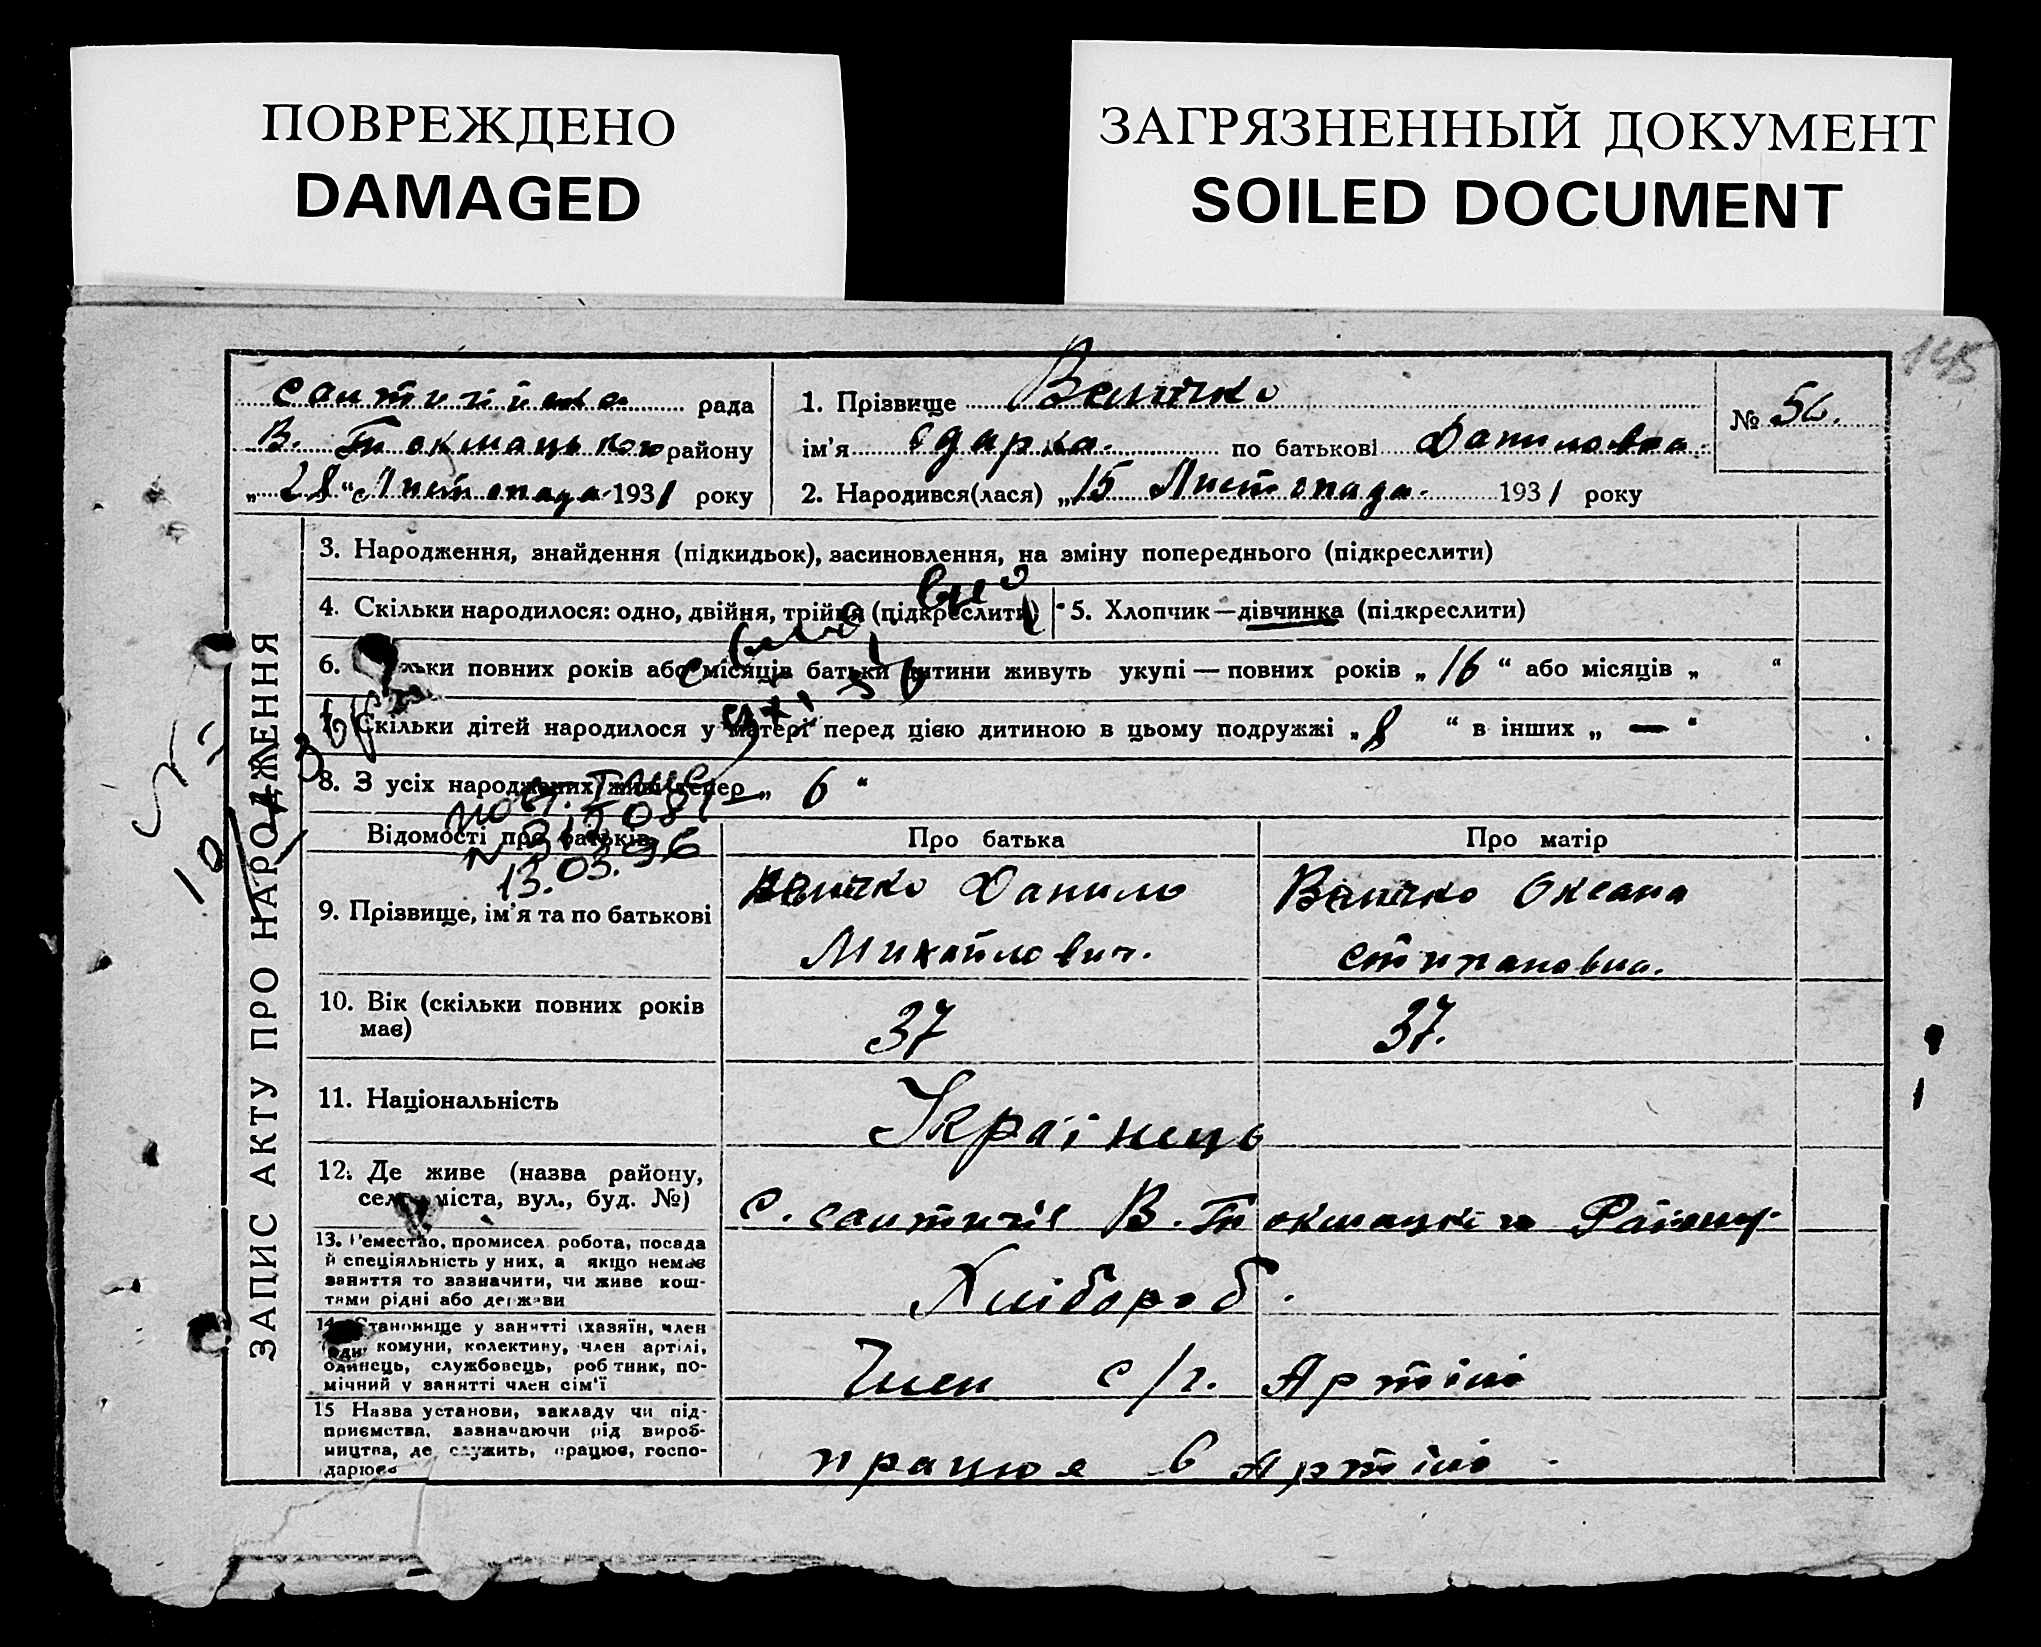 ПОВРЕЖДЕНО
DAMAGED
ЗАГРЯЗНЕННЫЙ ДОКУМЕНТ
SOILED DOCUMENT
145
рада
В. Токмацького району
„28“ Листопада 1931 року
1. Прізвище Величко
ім'я Одарка по батькові Даниловна
2. Народився(лася) „15 Листопада 1931 року
№ 56.
ЗАПИС АКТУ ПРО НАРОДЖЕННЯ
3. Народження, знайдення (підкидьок), засиновлення, на зміну попереднього (підкреслити)
4. Скільки народилося: одно, двійня, трійня (підкреслити)
5. Хлопчик — дівчинка (підкреслити)
6. повних років або місяців батьки дитини живуть укупі — повних років „16“ або місяців „ “
Скільки дітей народилося у матері перед цією дитиною в цьому подружжі „8“ в інших „—“
8. З усіх народжених живі тепер „6“
13.03.96
Відомості про батьків
Про батька
Про матір
9. Прізвище, ім'я та по батькові
Величко Данило
Михайлович.
Величко Оксана
Степановна.
10. Вік (скільки повних років
має)
37
37.
11. Національність
Українець
12. Де живе (назва району,
село, міста, вул., буд. №)
с. В. Токмацького Району
13. Ремество, промисел, робота, посада
й спеціяльність у них, а якщо немає
заняття то зазначити, чи живе кош-
тами рідні або держави
Хлібороб.
14. Становище у занятті (хазяїн, член
комуни, колективу, член артілі,
одинець, службовець, робітник, по-
мічний у занятті член сім'ї
Член с/г. Артілі
15 Назва установи, закладу чи під-
приємства, зазначаючи рід вироб-
ництва, де служить, працює, госпо-
дарює
працює в Артілі.